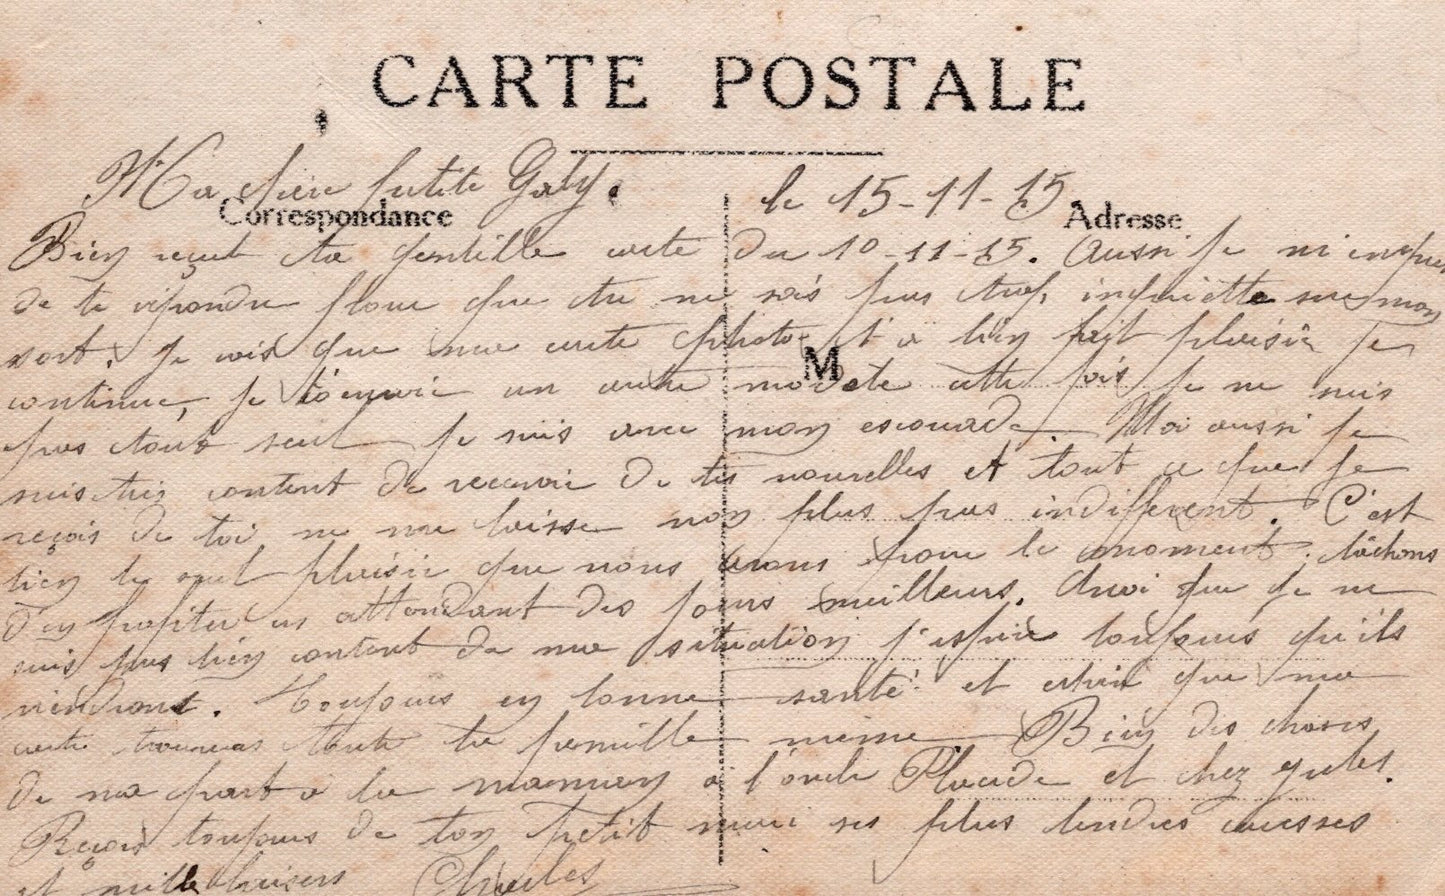 CARTE POSTALE
Ma chère petite Gaby. le 15-11-15
Correspondance Adresse
Bien reçut ta gentille carte du 10-11-15. Aussi je m'empres
de te répondre pour que tu ne sois pas trop inquiette sur mon
sort. Je vois que ma carte photo t'a bien fait plaisir Je
M
continue, je t'envoie un autre modele cette fois je ne suis
pas tout seul je suis avec mon escouade Moi aussi je
suis très content de recevoir de tes nouvelles et tout ce que je
reçois de toi ne me laisse non plus pas indifferent. C'est
bien le seul plaisir que nous avons pour le moment. tâchons
d'en profiter en attendant des jours meilleurs. Quoi que je ne
suis pas bien content de ma situation j'espère toujours qu'ils
viendront. Toujours en bonne santé et espère que ma
carte trouveras toute ta famille meme Bien des choses
de ma part a la maman a l'oncle Placide et chez Jules.
Reçois toujours de ton petit mari ses plus tendres caresses
et mille baisers Charles